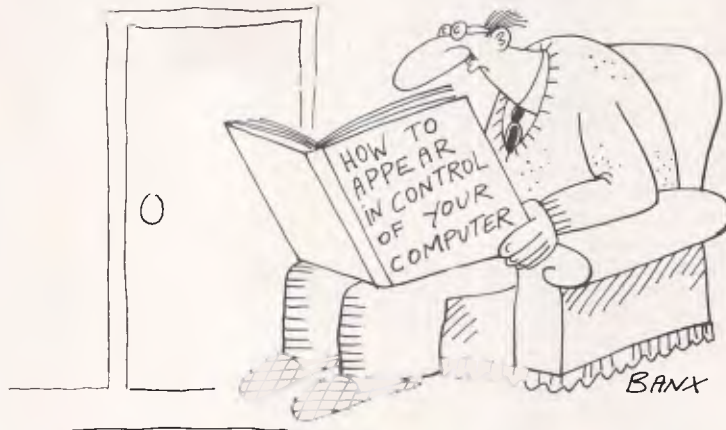 HOW TO
APPEAR
IN CONTROL
OF YOUR
COMPUTER
BANX